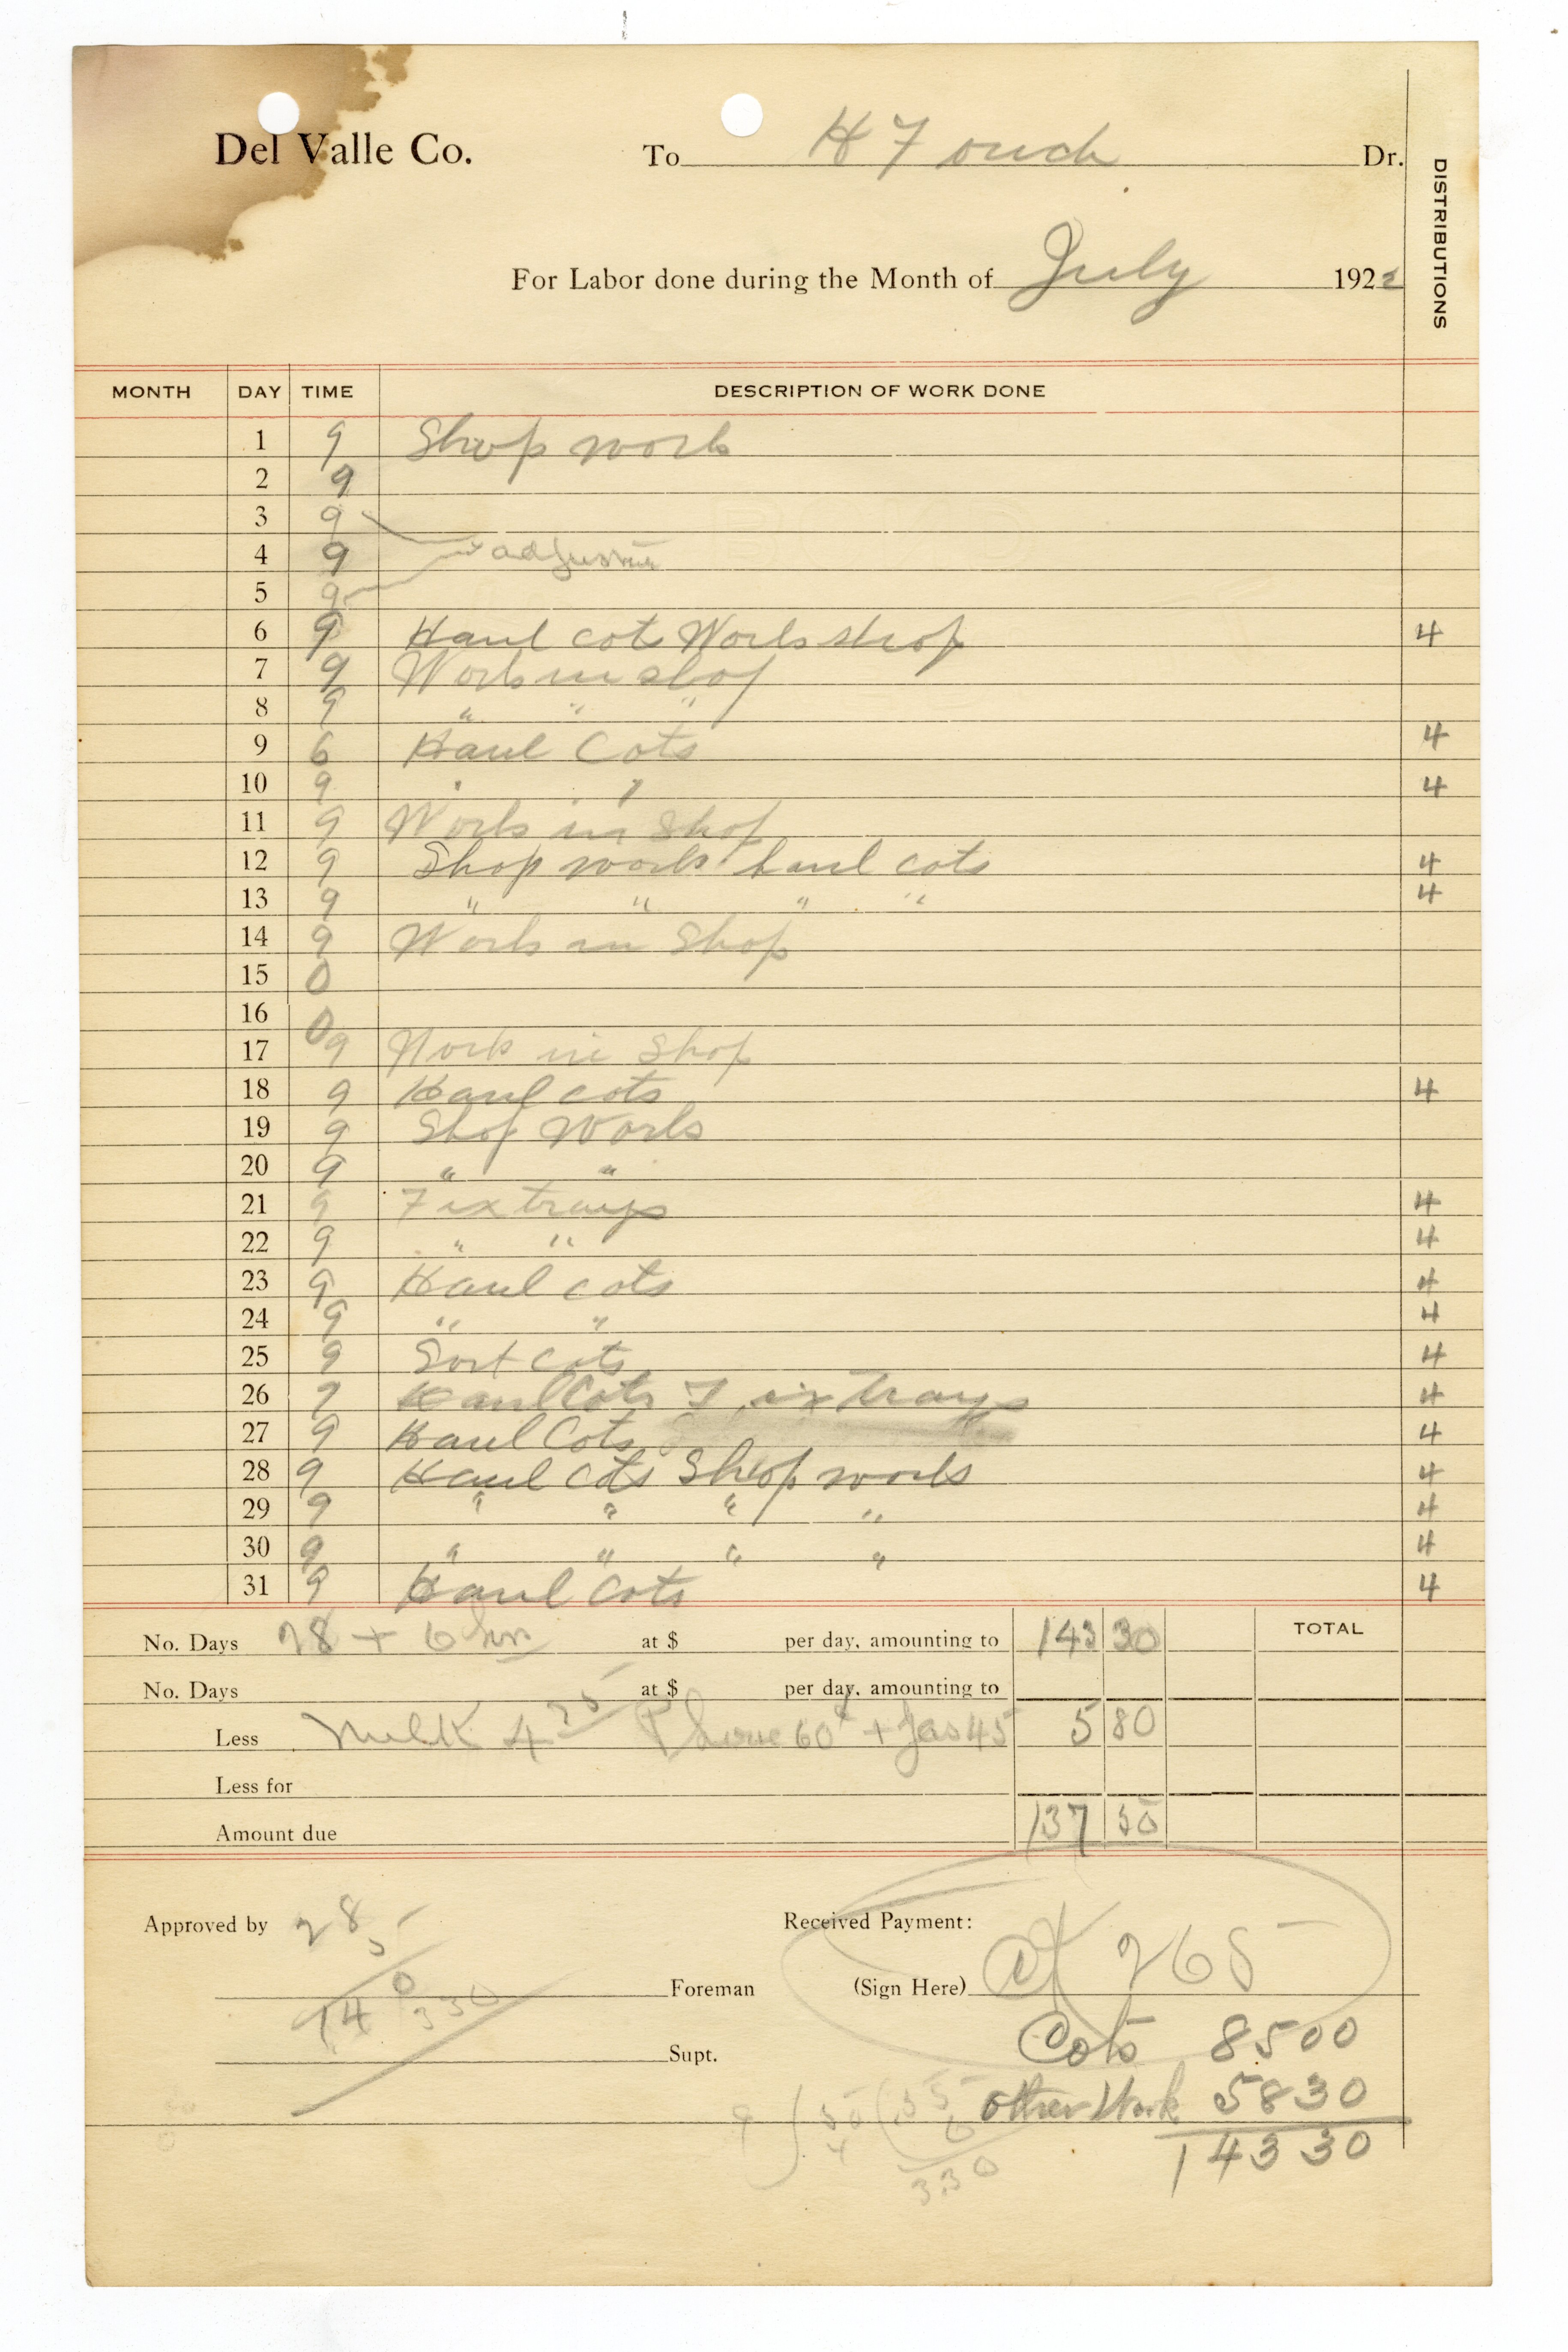 Del Valle Co. To H Fouch Dr.
DISTRIBUTIONS
For Labor done during the Month of July 1922
MONTH DAY TIME DESCRIPTION OF WORK DONE
1 9 Shop work
2 9
3 9
4 9
5 9
6 9 Haul cots Work shop 4
7 9 Work in shop
8 9 " " "
9 6 Haul Cots 4
10 9 " " 4
11 9 Work in Shop
12 9 Shop work haul cots 4
13 9 " " " " 4
14 9 Work in Shop
15 0
16 0
17 9 Work in Shop
18 9 Haul cots 4
19 9 Shop Work
20 9 " "
21 9 Fix trays 4
22 9 " " 4
23 9 Haul cots 4
24 9 " " 4
25 9 Sort Cots 4
26 9 Haul Cots Fix trays 4
27 9 Haul Cots 4
28 9 Haul cots Shop work 4
29 9 " " " " 4
30 9 " " " " 4
31 9 Haul Cots 4
No. Days 28 + 6 hrs at $ per day, amounting to 143 30 TOTAL
No. Days at $ per day, amounting to
Less Milk 4 75 Phone 60¢ + Gas 45 5 80
Less for
Amount due 137 50
Approved by 28 Received Payment:
5
140
330
Foreman (Sign Here) 265
Supt. Cots 8500
9 50 55 other Work 5830
4 6
330 14330